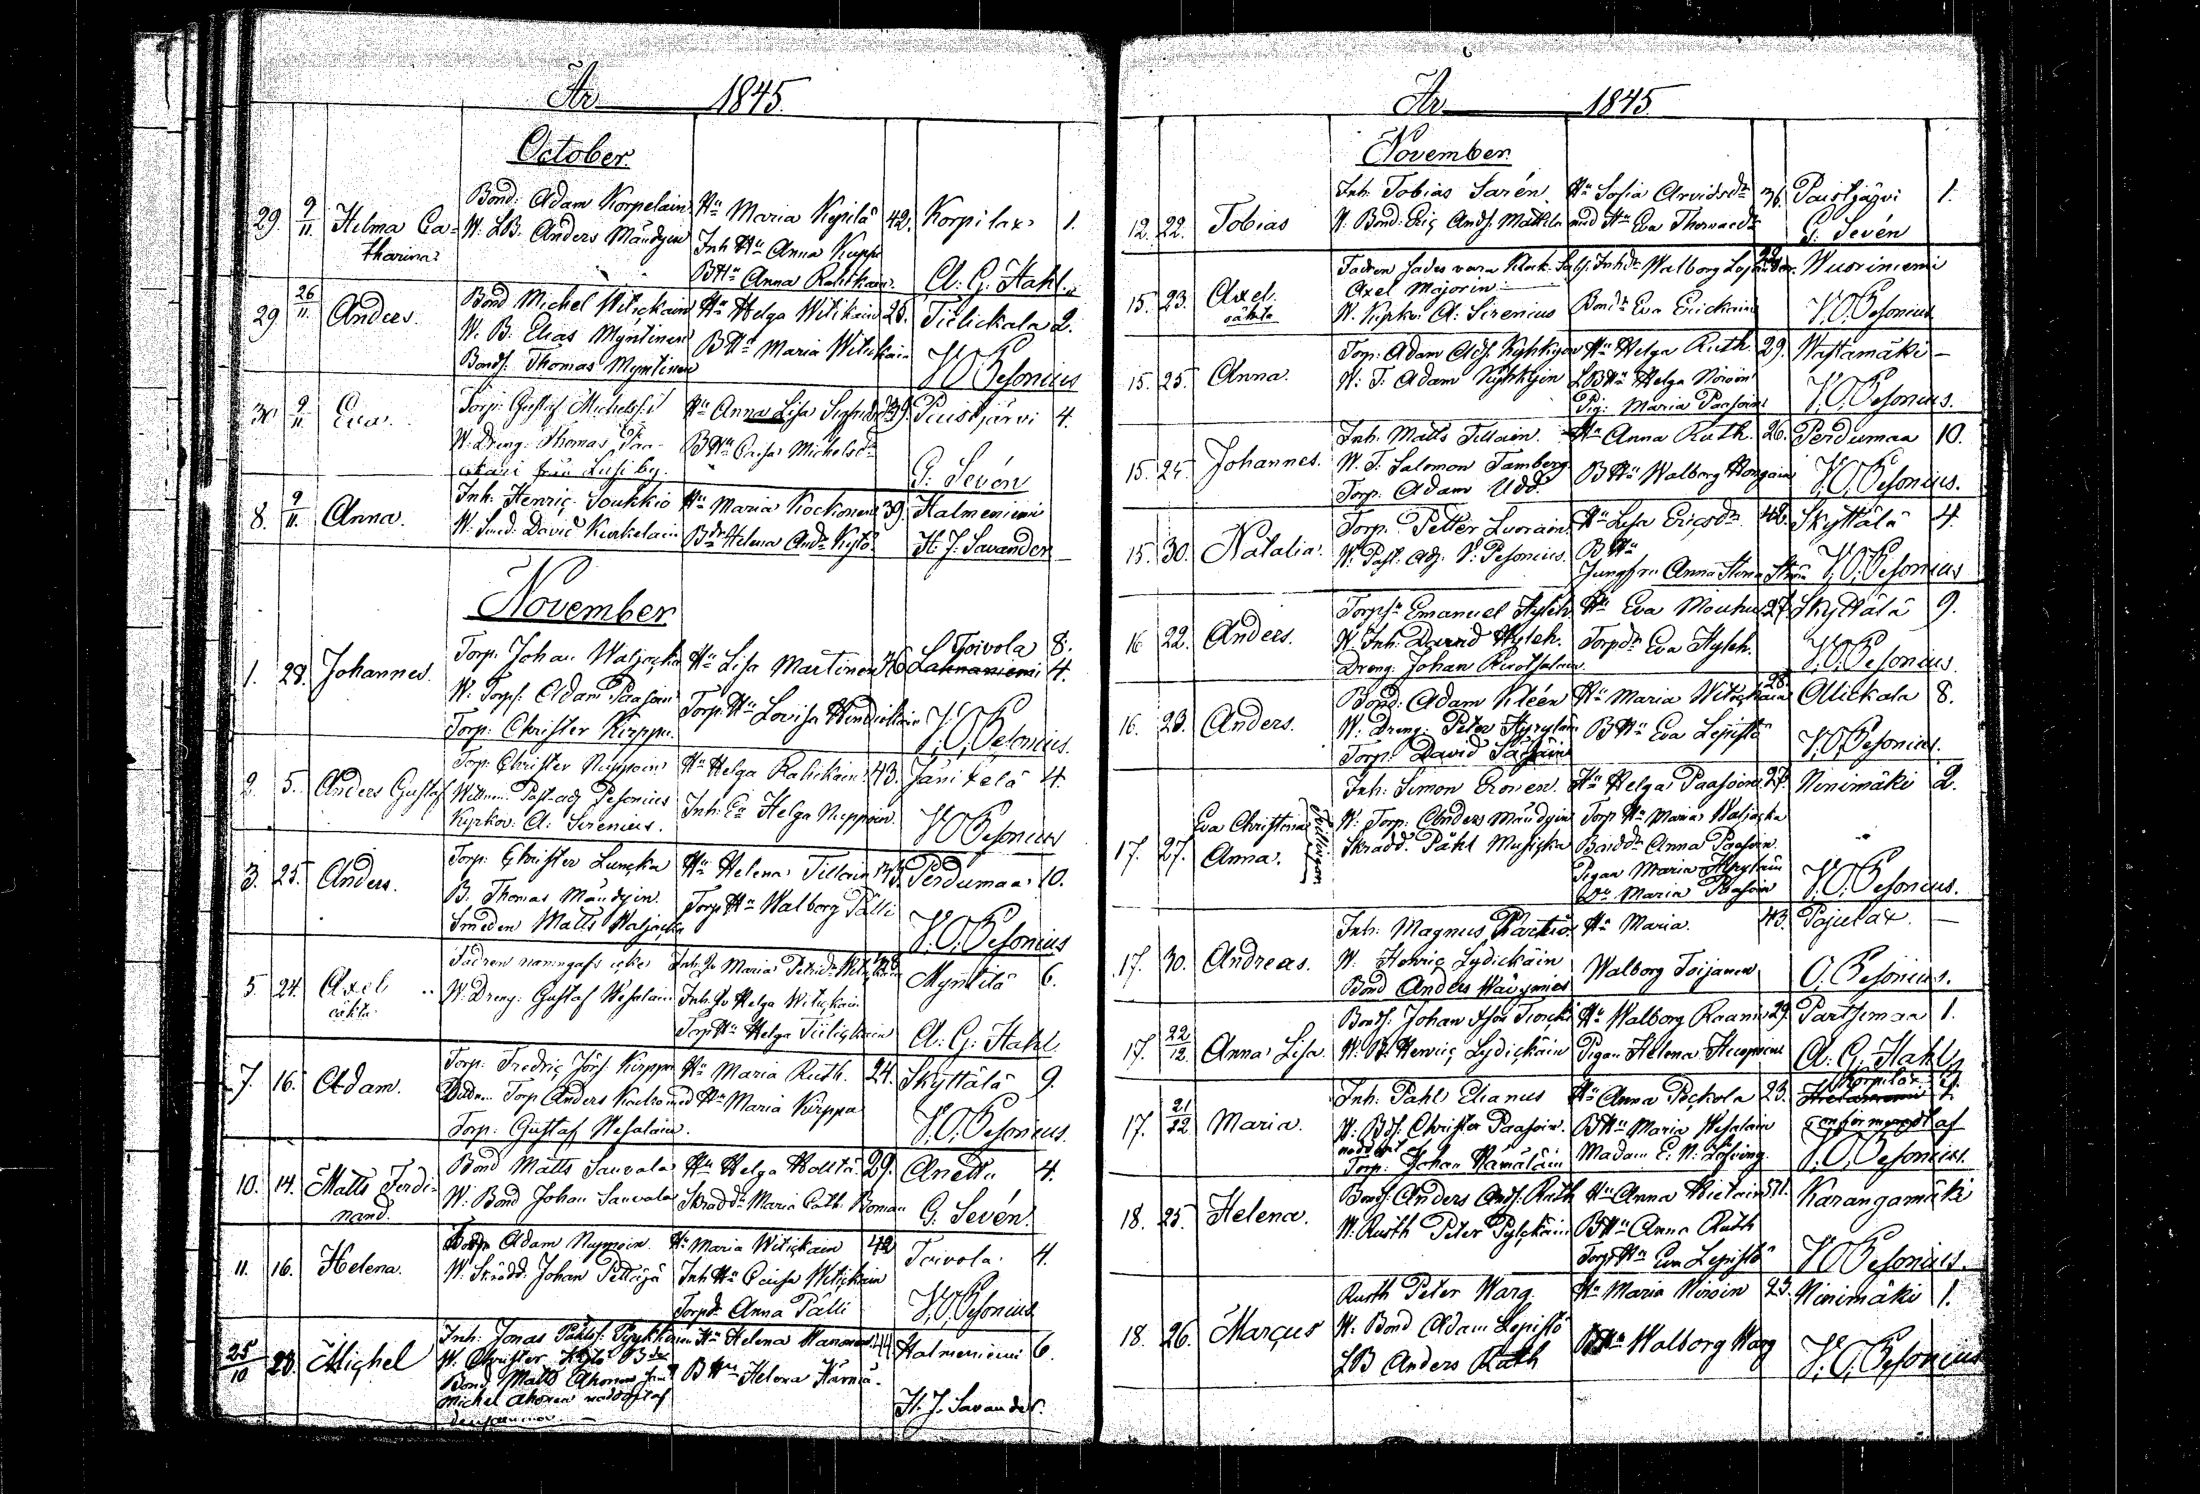 År 1845.
October.
29. 9/11. Helma Ca=
tharina
Bond: Adam Korpelain
W. LB. Anders Mändyin
Hu Maria Kypilä 42.
Inh Hu Anna Kuppi
BHu Anna Rahikain
Korpilax 1.
A. G. Stahl.
29 26/11. Anders.
Bond Michel Witickain
W. B. Elias Myntinen
Bonds. Thomas Myntinen
Hu Helga Witikain 25.
BHu Maria Witickain
Tielickala 2.
V. O. Pesonius
30 9/11. Eva.
Torp: Gustaf Michelss:
W. Dreng. Thomas
från Lusi by.
Hu Anna Lisa 39.
BHu Caisa Michelsdr
Puistjärvi 4.
G. Sevén
8. 9/11. Anna.
Inh. Henric Soukkio
W. Smed. David Kurkelain
Hu Maria Kockonen 39.
Bdr Helena Andr Kytö
Halmeniemi
H. J. Savander
November
1. 28. Johannes.
Torp. Johan Waljacka
W. Torps. Adam Paasoin
Torp. Christer Kirppu.
Hu Lisa Martinen 36
Torp. Hu Lovisa Hendrickain
Toivola 8.
Lahnaniemi 4.
V. O. Pesonius.
2. 5. Anders Gustaf
Torp. Christer Nuppoin
Wittnen. Past. adj Pesonius
Kyrkov. A. Sirenius.
Hu Helga Rahickain 43.
Inh. Ea Helga Nuppoin
Jänikelä 4.
V. O. Pesonius
3. 25. Anders.
Torp. Christer Luncka
B. Thomas Mändyin.
Smeden Matts Waljacka
Hu Helena Tillain
Torp Hu Walborg Pälli
Perdumaa 10.
V. O. Pesonius
5. 24. Axel
oäkta
Fadren namngafs icke
W. Dreng. Gustaf Wesalain
Maria Petridr
Helga Witickain
Torp Hu Helga Tielickain
Myntilä 6.
A. G. Stahl.
7. 16. Adam.
Torp. Fredric Jörs. Kirppu
Torp Anders
Torp. Gustaf Wesalain.
Hu Maria Ruth. 24.
Hu Maria Kirppu
Skyttälä 9.
V. O. Pesonius.
10. 14. Matts Ferdi=
nand.
Bond Matts Sauvala
W. Bond Johan Sauvala
Hu Helga Holtta 29.
Skraddr Maria Cath. Boman
Anettu 4.
G. Sevén.
11. 16. Helena.
Adam Nuppoin.
W. Skrädd. Johan Peltoja
Hu Maria Witickain 42
Inh Hu Caisa Witickain
Torpdr Anna Pälli
Toivola. 4.
V. O. Pesonius
25/10 23. Michel
Inh. Jonas Påhls. Pyykkönen
W. Christer Kytö
Bond Matts Ahonen
Michel Ahonen nöddöpt af
densamma.
Hu Helena Manninen 44.
BHu Helena Härmä.
Halmeniemi 6.
H. J. Savander.
År 1845.
November.
12. 22. Tobias
Inh. Tobias Sarén.
W. Bond. Eric Ands. Mattila
Hu Sofia Arvidsdr 36.
med Hu Eva Thomasdr
Puistjärvi 1.
G. Sevén
15. 23. Axel.
oäkta
Fadren sades vara Klock.
Axel Majorin
W. Kyrkv. A: Sirenius
Inhdr Walborg
Bondr Eva Erickain
Wuoriniemi
V. O. Pesonius
15. 25. Anna.
Torp. Adam Ads. Kyhkyin
W. T. Adam Kyhkyin
Hu Helga Ruth. 29.
LBHu Helga Niroin
Pig. Maria Paasoin
Wastamäki —
V. O. Pesonius.
15. 24. Johannes.
Inh. Matts Tillain.
W. T. Salomon Tamberg
Torp. Adam Udd.
Hu Anna Ruth. 26.
BHu Walborg Hongain
Perdumaa 10.
V. O. Pesonius.
15. 30. Natalia.
Torp. Petter Luorain
W. Past. Adj. V. Pesonius.
Hu Lisa Ericsdr 42.
BHu
Jungfru Anna Stena
Skyttälä 4.
V. O. Pesonius
16 22. Anders.
Torps. Emanuel Hyleh.
W. Inh. David Hyleh.
Dreng. Johan Ruotsalain
Hu Eva Mouhu 27.
Torpdr Eva Hyleh.
Skyttälä 9.
V. O. Pesonius.
16. 23. Anders.
Bond. Adam Kléen
W. Dreng. Peter Hyryläin
Torp. David
Hu Maria Witickain 28.
BHu Eva Lepistö
Allickala 8.
V. O. Pesonius.
17. 27. Eva Christina
Anna.
Tvillingar
Inh. Simon Eronen.
W. Torp. Anders Mändyin
Skradd. Påhl Musicka
Hu Helga Paasoin 27.
Torp Hu Maria Waljacka
Anna Paasoin.
Pigan Maria Hyryläin
Maria Paasoin
Ninimäki 2.
V. O. Pesonius.
17. 30. Andreas.
Inh. Magnus Partio
W. Henric Lydickäin
Bond Anders Häyrinen
Hu Maria. 43.
Walborg Toijanen
Pajulax. —
O. Pesonius.
17. 22/12. Anna Lisa.
Bonds. Johan
W. B. Henric Lydickäin
Hu Walborg Raanin 29.
Pigan Helena
Partsimaa 1.
A. G. Stahl
17. 21/22 Maria.
Inh. Pahl Elianus
W. Bds. Christer Paasoin.
nöddöpt
Torp. Johan Hämäläin
Hu Anna Pöckola 23.
BHu Maria Wesalain
Madam E. N.
Korpilax. 2.
confirmeradt af
V. O. Pesonius.
18. 25. Helena.
Bonds. Anders Ands. Ruth
W. Rusth Peter Pylckäin
Hu Anna Hietain
BHu Anna Ruth
Torp Hu Eva Lepistö
Karangamäki
V. O. Pesonius.
18. 26. Marcus
Rusth Peter Warg.
W. Bond Adam Lepistö
LB Anders Ruth
Hu Maria Niroin 23.
BHu Walborg Warg
Ninimäki 1.
V. O. Pesonius